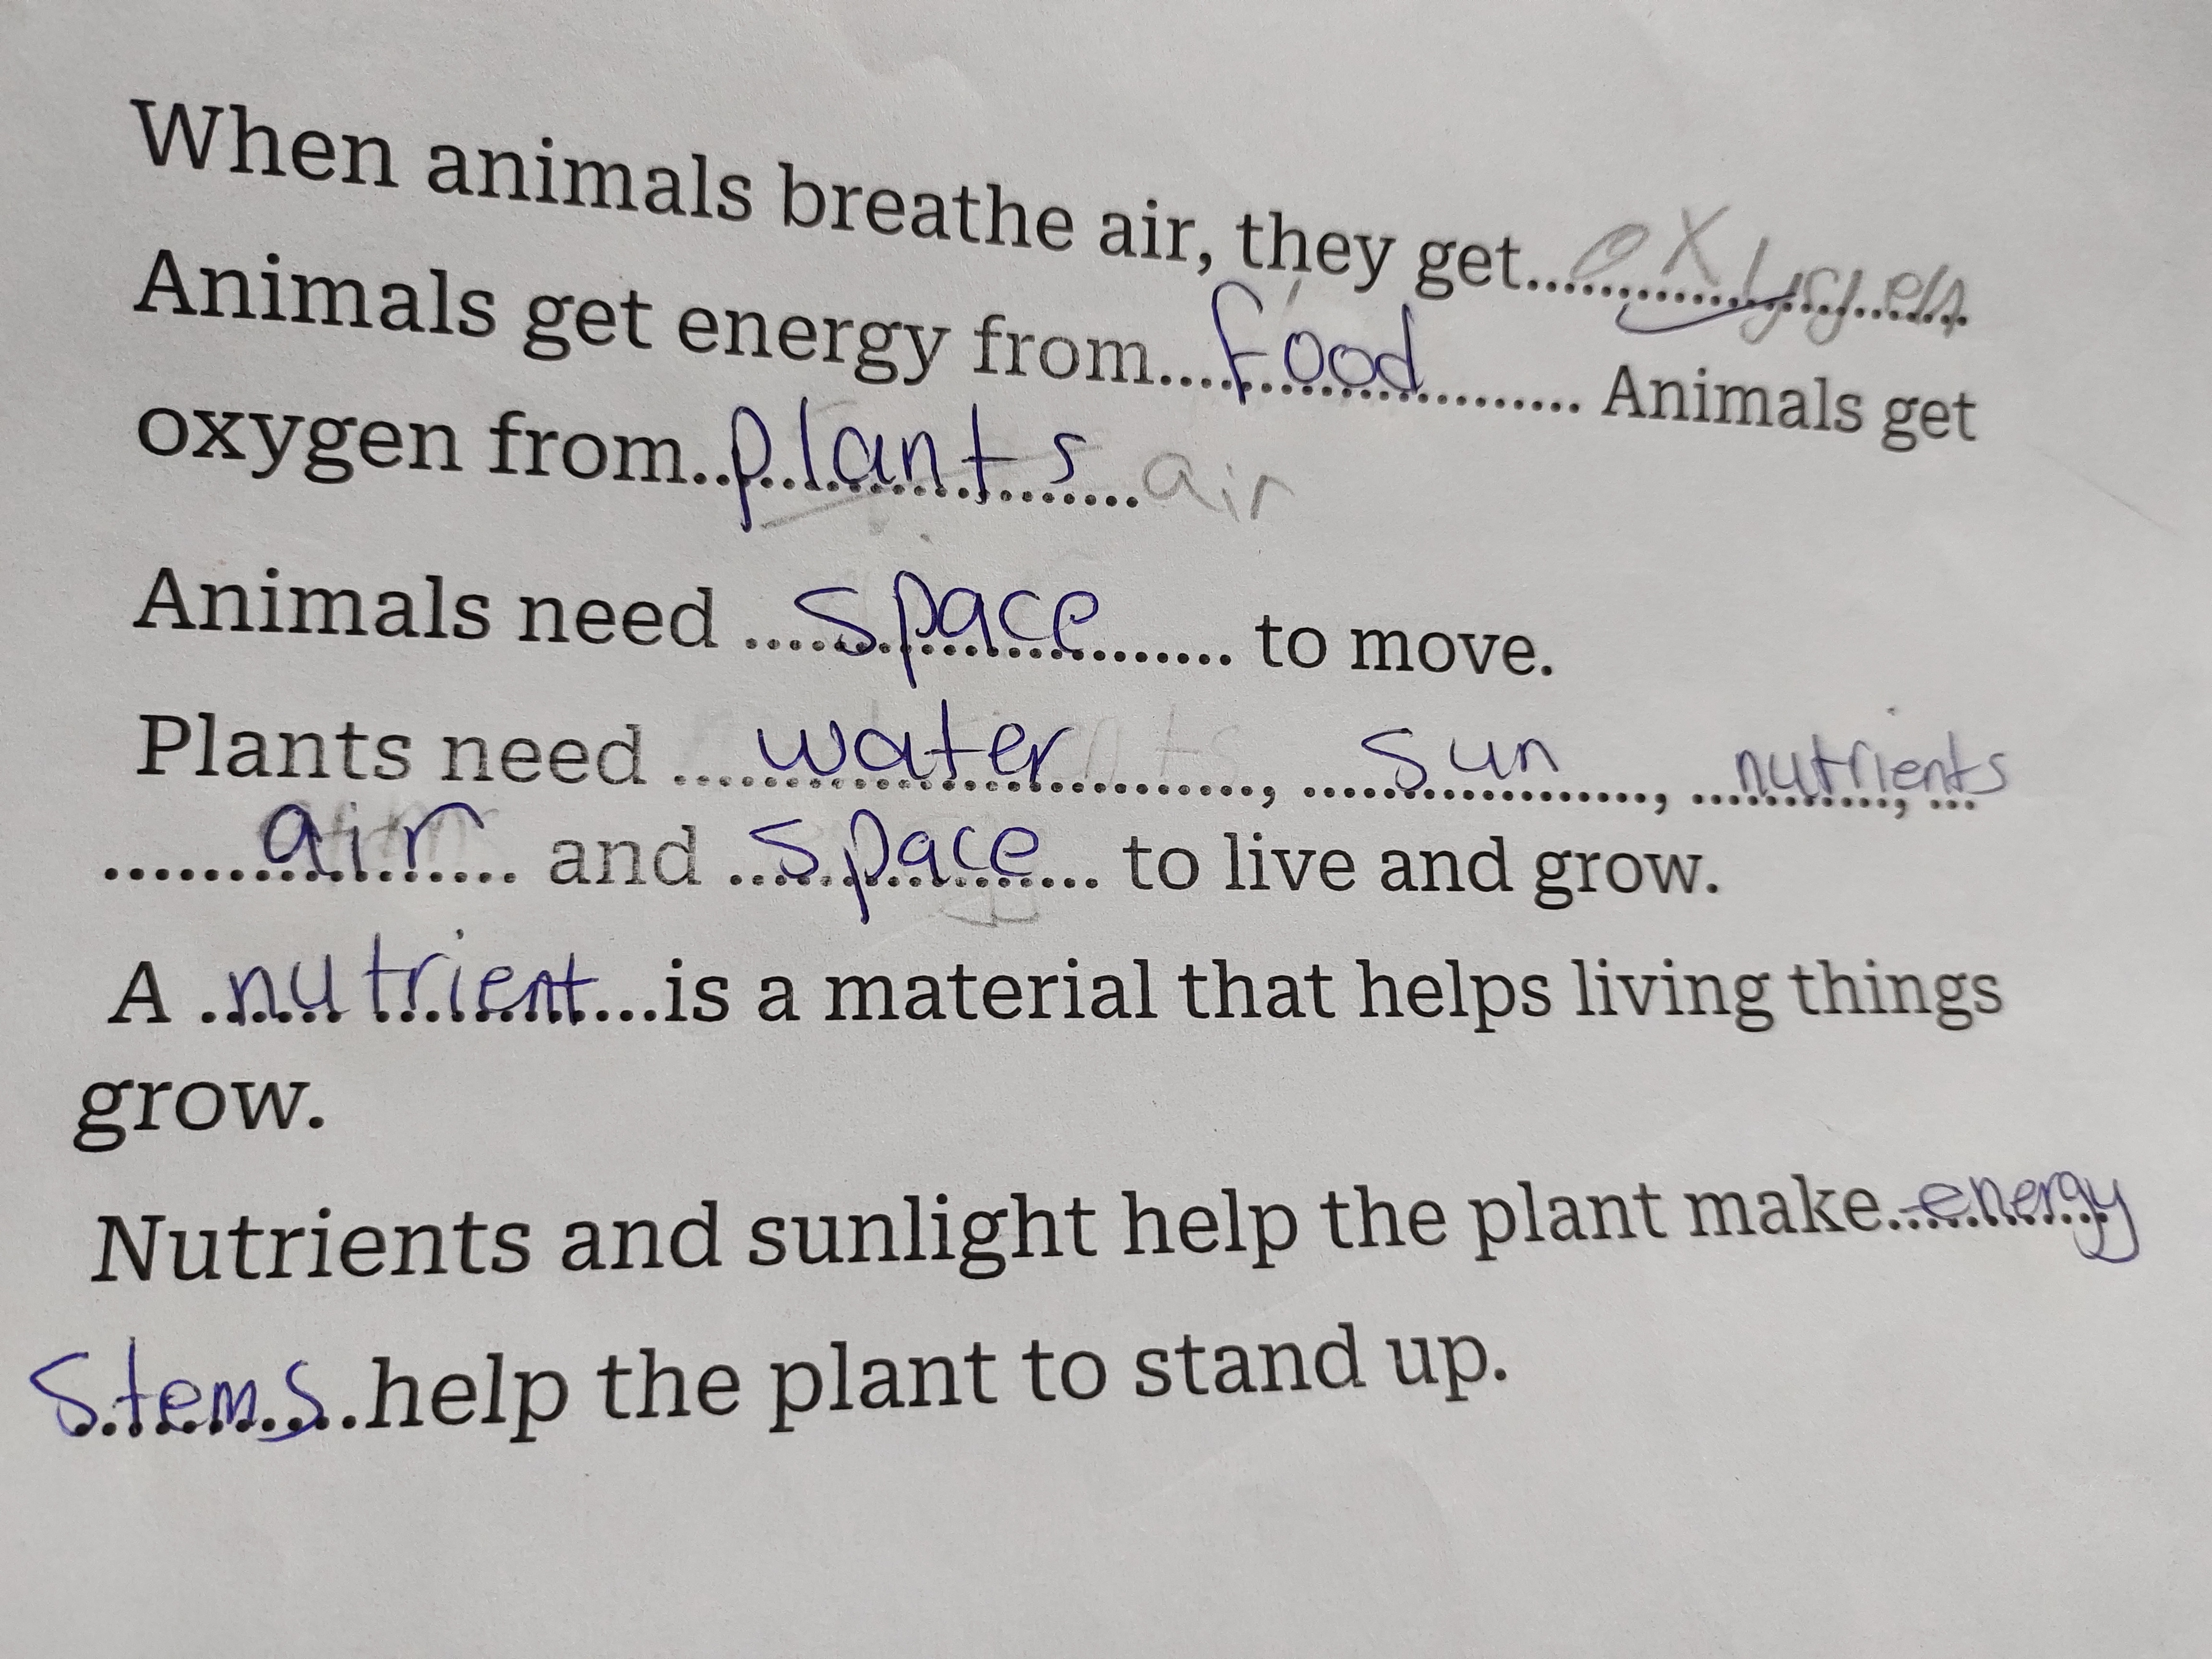 When animals breathe air, they get..........oxygen
Animals get energy from....food.......... Animals get
oxygen from..plants.......air
Animals need ....space....... to move.
Plants need ....water.........., ....sun........, ....nutrients, ...
........air...... and ....space.... to live and grow.
A .nutrient...is a material that helps living things
grow.
Nutrients and sunlight help the plant make..energy
Stems..help the plant to stand up.